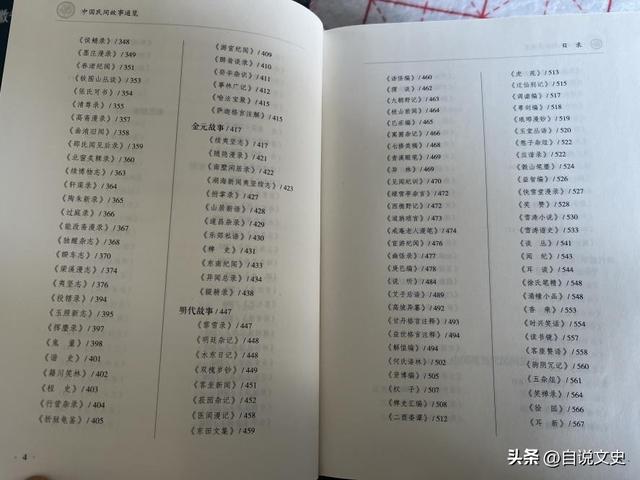 中国民间故事通览
《侯鲭录》/ 348
《墨庄漫录》/ 349
《春渚纪闻》/ 351
《铁围山丛谈》/ 353
《张氏可书》/ 354
《清尊录》/ 355
《高斋漫录》/ 357
《曲洧旧闻》/ 358
《邵氏闻见后录》/ 359
《北窗炙輠录》/ 360
《续博物志》/ 363
《轩渠录》/ 364
《陶朱新录》/ 365
《过庭录》/ 366
《能改斋漫录》/ 367
《独醒杂志》/ 368
《睽车志》/ 370
《梁溪漫志》/ 374
《夷坚志》/ 376
《投辖录》/ 394
《玉照新志》/ 395
《挥麈录》/ 397
《鬼 董》/ 398
《谐 史》/ 401
《籍川笑林》/ 402
《桯 史》/ 403
《行营杂录》/ 404
《折狱龟鉴》/ 405
《游宦纪闻》/ 409
《醉翁谈录》/ 410
《癸辛杂识》/ 411
《事林广记》/ 412
《哈法宝鬘》/ 415
《萨迦格言注解》/ 415
金元故事 / 417
《续夷坚志》/ 417
《随隐漫录》/ 421
《南墅闲居录》/ 422
《湖海新闻夷坚续志》/ 423
《拊掌录》/ 427
《山居新语》/ 428
《遂昌杂录》/ 429
《乐郊私语》/ 430
《稗 史》/ 431
《东南纪闻》/ 433
《异闻总录》/ 434
《辍耕录》/ 438
明代故事 / 447
《霏雪录》/ 447
《明廷杂记》/ 448
《水东日记》/ 448
《双槐岁钞》/ 449
《客座新闻》/ 451
《菽园杂记》/ 452
《医闾漫记》/ 458
《东田文集》/ 459
4
目 录
《语怪编》/ 460
《猥 谈》/ 462
《九朝野记》/ 463
《枝山前闻》/ 463
《巴氏编》/ 465
《寓圃杂记》/ 466
《七修类稿》/ 468
《青溪暇笔》/ 469
《异 林》/ 469
《见闻纪训》/ 470
《绿雪亭杂言》/ 472
《西樵野记》/ 472
《谈纂续言》/ 473
《戒庵老人漫笔》/ 474
《宦游纪闻》/ 476
《幽怪录》/ 477
《庚巳编》/ 478
《说 听》/ 484
《艾子后语》/ 489
《高坡异纂》/ 492
《甘丹格言注释》/ 493
《益世格言注释》/ 494
《解愠编》/ 494
《何氏语林》/ 502
《重博编》/ 505
《权 子》/ 507
《稗史汇编》/ 508
《二酉委谭》/ 512
《虎 苑》/ 513
《迂仙别记》/ 515
《调谑编》/ 517
《尊剑编》/ 518
《琅琊漫钞》/ 519
《玉堂丛语》/ 520
《憨子杂俎》/ 522
《应谐录》/ 522
《榖山笔麈》/ 524
《益智编》/ 526
《快雪堂漫录》/ 527
《笑 赞》/ 528
《雪涛小说》/ 530
《雪涛谐史》/ 533
《谈 丛》/ 541
《闻 纪》/ 543
《耳 谈》/ 543
《徐氏笔精》/ 548
《涌幢小品》/ 548
《杳 柰》/ 553
《时兴笑话》/ 554
《读书镜》/ 557
《客座赘语》/ 558
《狯阴冗记》/ 560
《五杂俎》/ 561
《笑禅录》/ 564
《狯 园》/ 566
《耳 新》/ 567
头条 @自说文史